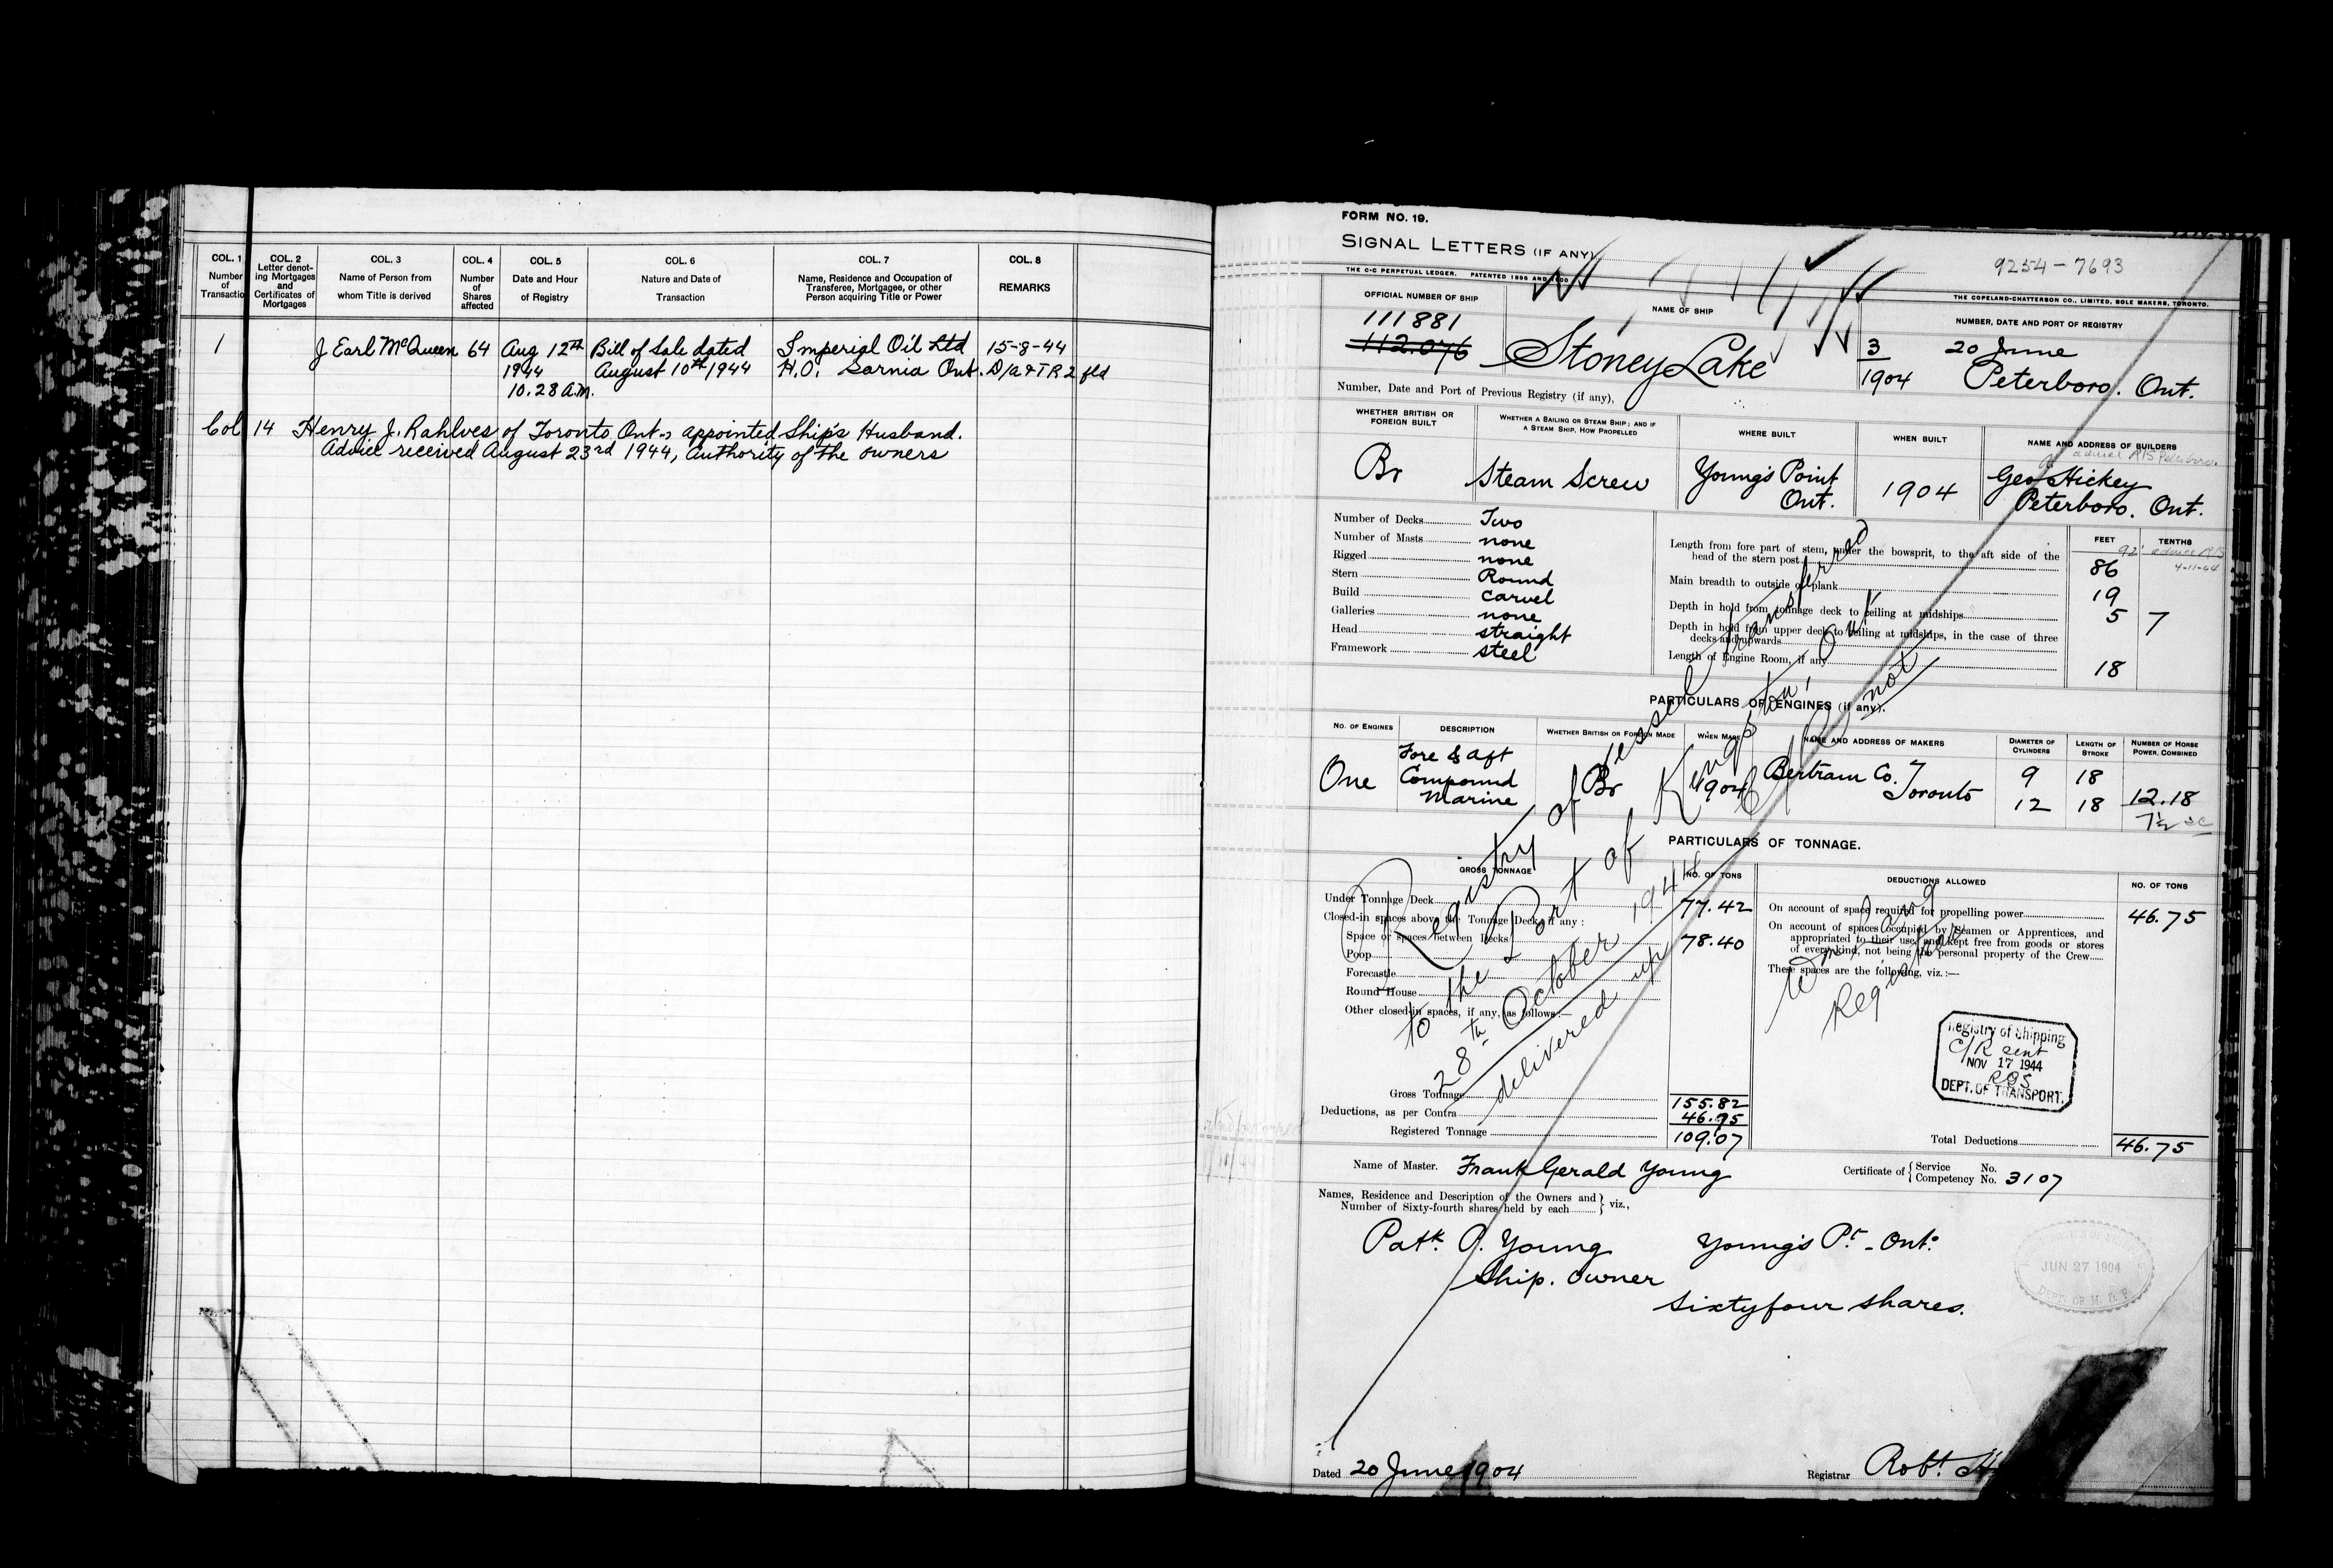 COL. 1
Number
of
Transactio
COL. 2
Letter denot-
ing Mortgages
and
Certificates of
Mortgages
COL. 3
Name of Person from
whom Title is derived
COL. 4
Number
of
Shares
affected
COL. 5
Date and Hour
of Registry
COL. 6
Nature and Date of
Transaction
COL. 7
Name, Residence and Occupation of
Transferee, Mortgagee, or other
Person acquiring Title or Power
COL. 8
REMARKS
1 J Earl McQueen 64 Aug 12th Bill of Sale dated Imperial Oil Ltd 15-8-44
1944 August 10th 1944 H.O. Sarnia Ont. D/a & TR 2 fld
10.28 A.M.
Col 14 Henry J. Rahlves of Toronto Ont., appointed Ship's Husband.
Advice received August 23rd 1944, Authority of the owners
FORM NO. 19.
SIGNAL LETTERS (IF ANY)
9254-7693
THE C-C PERPETUAL LEDGER. PATENTED 1896 AND 1900
THE COPELAND-CHATTERSON CO., LIMITED, SOLE MAKERS, TORONTO.
OFFICIAL NUMBER OF SHIP
111881
112.076
NAME OF SHIP
Stoney Lake
NUMBER, DATE AND PORT OF REGISTRY
3 20 June
1904 Peterboro. Ont.
Number, Date and Port of Previous Registry (if any),
WHETHER BRITISH OR
FOREIGN BUILT
Br
WHETHER A SAILING OR STEAM SHIP; AND IF
A STEAM SHIP, HOW PROPELLED
Steam Screw
WHERE BUILT
Young's Point
Ont.
WHEN BUILT
1904
NAME AND ADDRESS OF BUILDERS
Geo Hickey
Peterboro. Ont.
Number of Decks Two
Number of Masts none
Rigged none
Stern Round
Build Carvel
Galleries none
Head straight
Framework steel
FEET TENTHS
92' advice R/S
4-11-44
Length from fore part of stem, under the bowsprit, to the aft side of the
head of the stern post 86
Main breadth to outside of plank 19
Depth in hold from tonnage deck to ceiling at midships 5 7
Depth in hold from upper deck to ceiling at midships, in the case of three
decks and upwards
Length of Engine Room, if any 18
PARTICULARS OF ENGINES (if any).
NO. OF ENGINES
One
DESCRIPTION
Fore & Aft
Compound
Marine
WHETHER BRITISH OR FOREIGN MADE
Br
WHEN MADE
1904
NAME AND ADDRESS OF MAKERS
Bertram Co.
Toronto
DIAMETER OF
CYLINDERS
9
12
LENGTH OF
STROKE
18
18
NUMBER OF HORSE
POWER, COMBINED
12.18
7½
PARTICULARS OF TONNAGE.
GROSS TONNAGE NO. OF TONS
Under Tonnage Deck 77.42
Closed-in spaces above the Tonnage Deck, if any:
Space or spaces between Decks 78.40
Poop
Forecastle
Round House
Other closed-in spaces, if any, as follows:—
Gross Tonnage 155.82
Deductions, as per Contra 46.75
Registered Tonnage 109.07
DEDUCTIONS ALLOWED NO. OF TONS
On account of space required for propelling power 46.75
On account of spaces occupied by Seamen or Apprentices, and
appropriated to their use, and kept free from goods or stores
of every kind, not being the personal property of the Crew
These spaces are the following, viz.:—
Total Deductions 46.75
Registry of vessel transferred
to the Port of Kingston, Ont.
28th October 1944 C/R not
delivered up
Registrar
Registry of Shipping
C/R sent
NOV 17 1944
DEPT. OF TRANSPORT.
Name of Master. Frank Gerald Young
Certificate of { Service No.
Competency No. 3107
Names, Residence and Description of the Owners and
Number of Sixty-fourth shares held by each } viz.,
Patk. P. Young Young's Pt. - Ont.
Ship. owner
Sixtyfour shares.
JUN 27 1904
DEPT. OF M. & F.
Dated 20 June 1904
Registrar Robt.